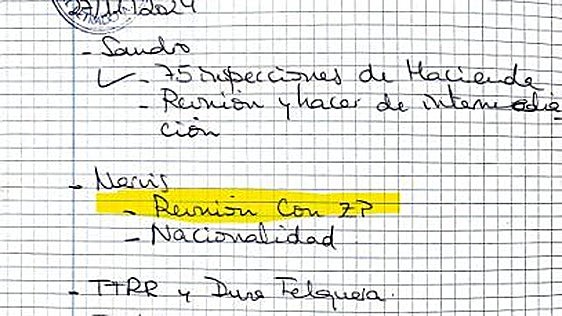 27/11/2024
- Sandro
- 75 inspecciones de Hacienda
- Reunión y hacer de intermedia-
ción
- Nervis
- Reunión con ZP
- Nacionalidad
- TTRR y Duro Felguera.